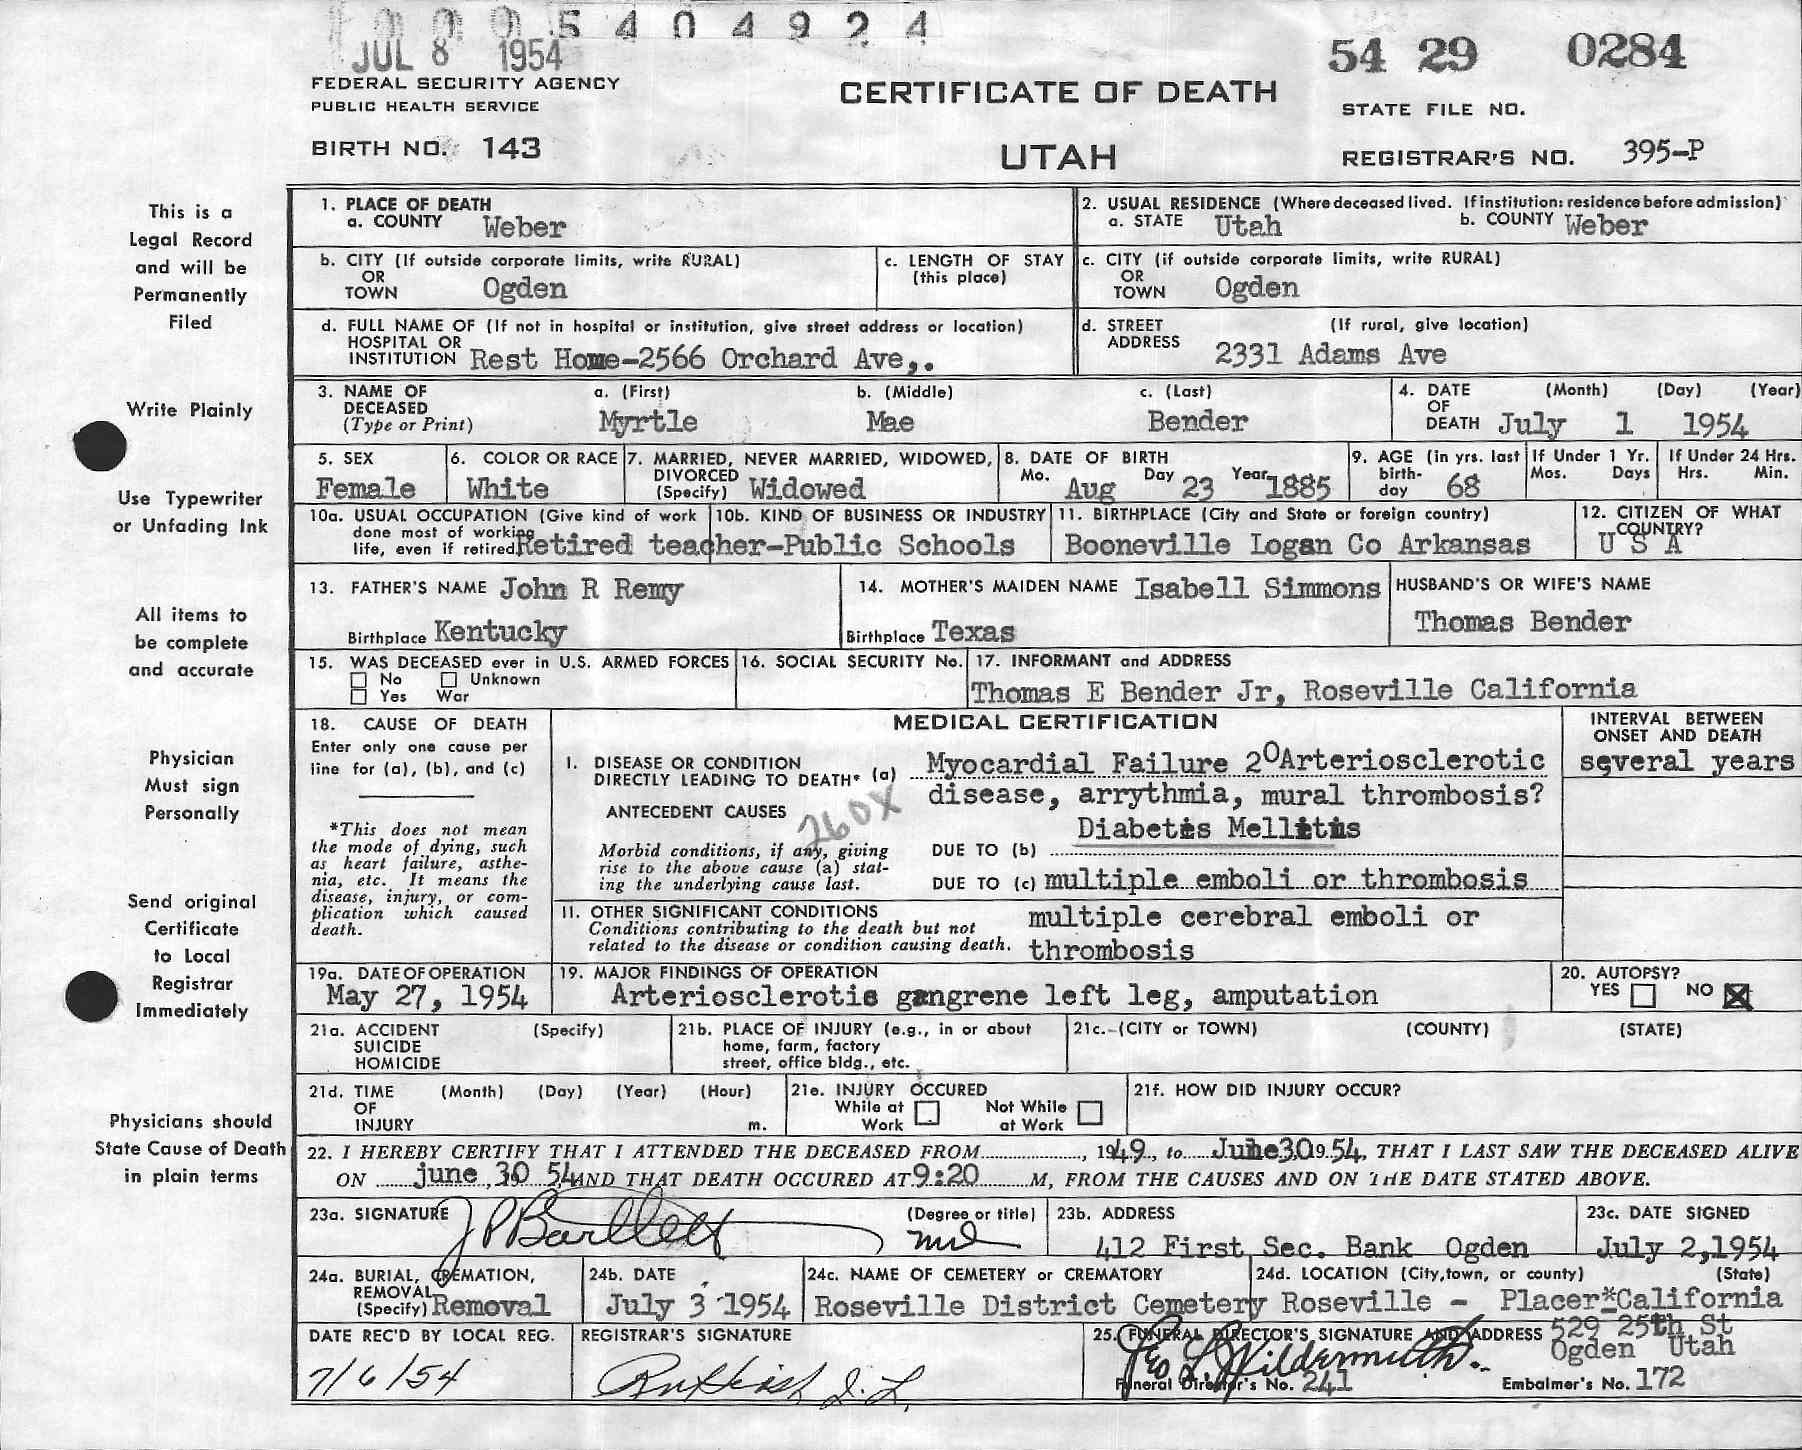 0005404924
JUL 8 1954
54 29 0284
FEDERAL SECURITY AGENCY
PUBLIC HEALTH SERVICE
CERTIFICATE OF DEATH
STATE FILE NO.
BIRTH NO. 143
UTAH
REGISTRAR'S NO. 395-P
This is a
Legal Record
and will be
Permanently
Filed
Write Plainly
Use Typewriter
or Unfading Ink
All items to
be complete
and accurate
Physician
Must sign
Personally
Send original
Certificate
to Local
Registrar
Immediately
Physicians should
State Cause of Death
in plain terms
1. PLACE OF DEATH
a. COUNTY Weber
2. USUAL RESIDENCE (Where deceased lived. If institution: residence before admission)
a. STATE Utah b. COUNTY Weber
b. CITY (If outside corporate limits, write RURAL)
OR
TOWN Ogden
c. LENGTH OF STAY
(this place)
c. CITY (if outside corporate limits, write RURAL)
OR
TOWN Ogden
d. FULL NAME OF (If not in hospital or institution, give street address or location)
HOSPITAL OR
INSTITUTION Rest Home-2566 Orchard Ave,.
d. STREET (If rural, give location)
ADDRESS 2331 Adams Ave
3. NAME OF a. (First) b. (Middle) c. (Last)
DECEASED
(Type or Print) Myrtle Mae Bender
4. DATE (Month) (Day) (Year)
OF
DEATH July 1 1954
5. SEX
Female
6. COLOR OR RACE
White
7. MARRIED, NEVER MARRIED, WIDOWED,
DIVORCED
(Specify) Widowed
8. DATE OF BIRTH
Mo. Aug Day 23 Year 1885
9. AGE (in yrs. last
birth-
day 68
If Under 1 Yr.
Mos. Days
If Under 24 Hrs.
Hrs. Min.
10a. USUAL OCCUPATION (Give kind of work
done most of working
life, even if retired) Retired teacher-Public Schools
10b. KIND OF BUSINESS OR INDUSTRY
11. BIRTHPLACE (City and State or foreign country)
Booneville Logan Co Arkansas
12. CITIZEN OF WHAT
COUNTRY?
U S A
13. FATHER'S NAME John R Remy
Birthplace Kentucky
14. MOTHER'S MAIDEN NAME Isabell Simmons
Birthplace Texas
HUSBAND'S OR WIFE'S NAME
Thomas Bender
15. WAS DECEASED ever in U.S. ARMED FORCES
No Unknown
Yes War
16. SOCIAL SECURITY No.
17. INFORMANT and ADDRESS
Thomas E Bender Jr, Roseville California
18. CAUSE OF DEATH
Enter only one cause per
line for (a), (b), and (c)
*This does not mean
the mode of dying, such
as heart failure, asthe-
nia, etc. It means the
disease, injury, or com-
plication which caused
death.
MEDICAL CERTIFICATION
INTERVAL BETWEEN
ONSET AND DEATH
several years
I. DISEASE OR CONDITION
DIRECTLY LEADING TO DEATH* (a) Myocardial Failure 2° Arteriosclerotic
disease, arrythmia, mural thrombosis?
ANTECEDENT CAUSES 260X
Diabetis Mellitis
Morbid conditions, if any, giving
rise to the above cause (a) stat-
ing the underlying cause last.
DUE TO (b)
DUE TO (c) multiple emboli or thrombosis
II. OTHER SIGNIFICANT CONDITIONS
Conditions contributing to the death but not
related to the disease or condition causing death.
multiple cerebral emboli or
thrombosis
19a. DATE OF OPERATION
May 27, 1954
19. MAJOR FINDINGS OF OPERATION
Arteriosclerotic gangrene left leg, amputation
20. AUTOPSY?
YES NO X
21a. ACCIDENT (Specify)
SUICIDE
HOMICIDE
21b. PLACE OF INJURY (e.g., in or about
home, farm, factory
street, office bldg., etc.
21c. (CITY or TOWN) (COUNTY) (STATE)
21d. TIME (Month) (Day) (Year) (Hour)
OF
INJURY m.
21e. INJURY OCCURED
While at Work Not While at Work
21f. HOW DID INJURY OCCUR?
22. I HEREBY CERTIFY THAT I ATTENDED THE DECEASED FROM , 1949, to June 30 1954, THAT I LAST SAW THE DECEASED ALIVE
ON june 30 54 AND THAT DEATH OCCURED AT 9:20 M, FROM THE CAUSES AND ON THE DATE STATED ABOVE.
23a. SIGNATURE (Degree or title)
J P Bartlett md
23b. ADDRESS
412 First Sec. Bank Ogden
23c. DATE SIGNED
July 2,1954
24a. BURIAL, CREMATION,
REMOVAL
(Specify) Removal
24b. DATE
July 3 1954
24c. NAME OF CEMETERY or CREMATORY
Roseville District Cemetery
24d. LOCATION (City, town, or county) (State)
Roseville - Placer*California
DATE REC'D BY LOCAL REG.
7/6/54
REGISTRAR'S SIGNATURE
25. FUNERAL DIRECTOR'S SIGNATURE AND ADDRESS 529 25th St
Ogden Utah
Geo L Wildermuth
Funeral Director's No. 241
Embalmer's No. 172